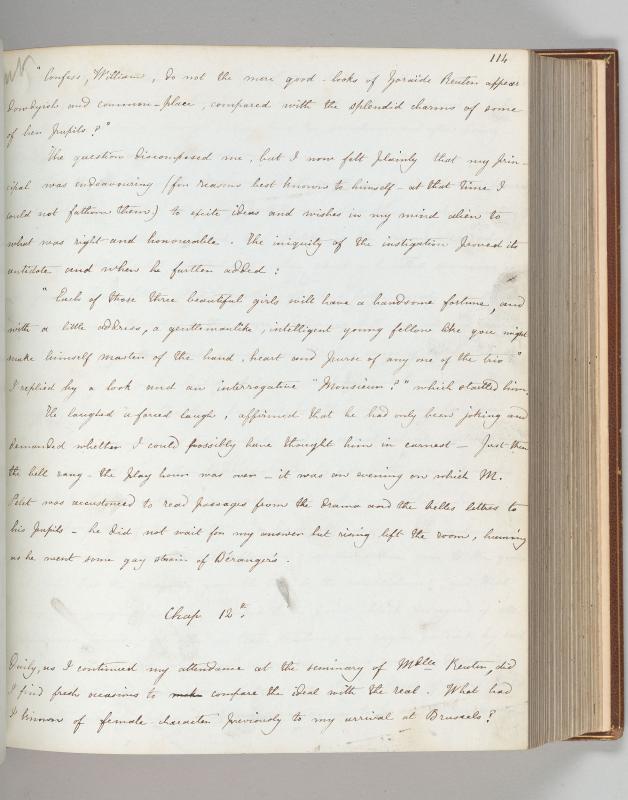 114
"Confess, William, do not the mere good-looks of Zoraïde Reuter appear
dowdyish and common-place, compared with the splendid charms of some
of her pupils?"
The question discomposed me, but I now felt plainly that my prin-
cipal was endeavouring (for reasons best known to himself - at that time I
could not fathom them) to excite ideas and wishes in my mind alien to
what was right and honourable. The iniquity of the instigation proved its
antidote and when he further added:
"Each of those three beautiful girls will have a handsome fortune, and
with a little address, a gentlemanlike, intelligent young fellow like you might
make himself master of the hand, heart and purse of any one of the trio"
I replied by a look and an interrogative "Monsieur?" which startled him.
He laughed a forced laugh, affirmed that he had only been joking and
demanded whether I could possibly have thought him in earnest - Just then
the bell rang - the play hour was over - it was an evening on which M.
Pelet was accustomed to read passages from the drama and the belles lettres to
his pupils - he did not wait for my answer but rising left the room, humming
as he went some gay strain of Béranger's.
Chap 12th.
Daily, as I continued my attendance at the seminary of Mdlle Reuter, did
I find fresh occasions to make compare the ideal with the real. What had
I known of female character previously to my arrival at Brussels?